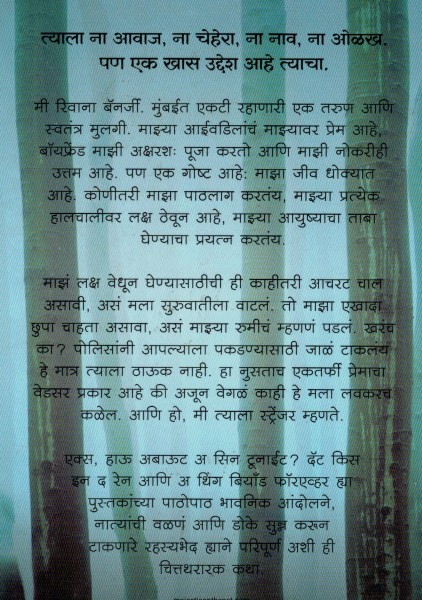 त्याला ना आवाज, ना चेहेरा, ना नाव, ना ओळख.
पण एक खास उद्देश आहे त्याचा.
मी रिवाना बॅनर्जी. मुंबईत एकटी रहाणारी एक तरुण आणि
स्वतंत्र मुलगी. माझ्या आईवडिलांचं माझ्यावर प्रेम आहे,
बॉयफ्रेंड माझी अक्षरशः पूजा करतो आणि माझी नोकरीही
उत्तम आहे. पण एक गोष्ट आहे: माझा जीव धोक्यात
आहे. कोणीतरी माझा पाठलाग करतंय, माझ्या प्रत्येक
हालचालीवर लक्ष ठेवून आहे, माझ्या आयुष्याचा ताबा
घेण्याचा प्रयत्न करतंय.
माझं लक्ष वेधून घेण्यासाठीची ही काहीतरी आचरट चाल
असावी, असं मला सुरुवातीला वाटलं. तो माझा एखादा
छुपा चाहता असावा, असं माझ्या रुमीचं म्हणणं पडलं. खरंच
का? पोलिसांनी आपल्याला पकडण्यासाठी जाळं टाकलंय
हे मात्र त्याला ठाऊक नाही. हा नुसताच एकतर्फी प्रेमाचा
वेडसर प्रकार आहे की अजून वेगळं काही हे मला लवकरच
कळेल. आणि हो, मी त्याला स्ट्रेंजर म्हणते.
एक्स, हाऊ अबाऊट अ सिन टूनाईट? दॅट किस
इन द रेन आणि अ थिंग बियाँड फॉरएव्हर ह्या
पुस्तकांच्या पाठोपाठ भावनिक आंदोलने,
नात्यांची वळणं आणि डोके सुन्न करून
टाकणारे रहस्यभेद ह्याने परिपूर्ण अशी ही
चित्तथरारक कथा.